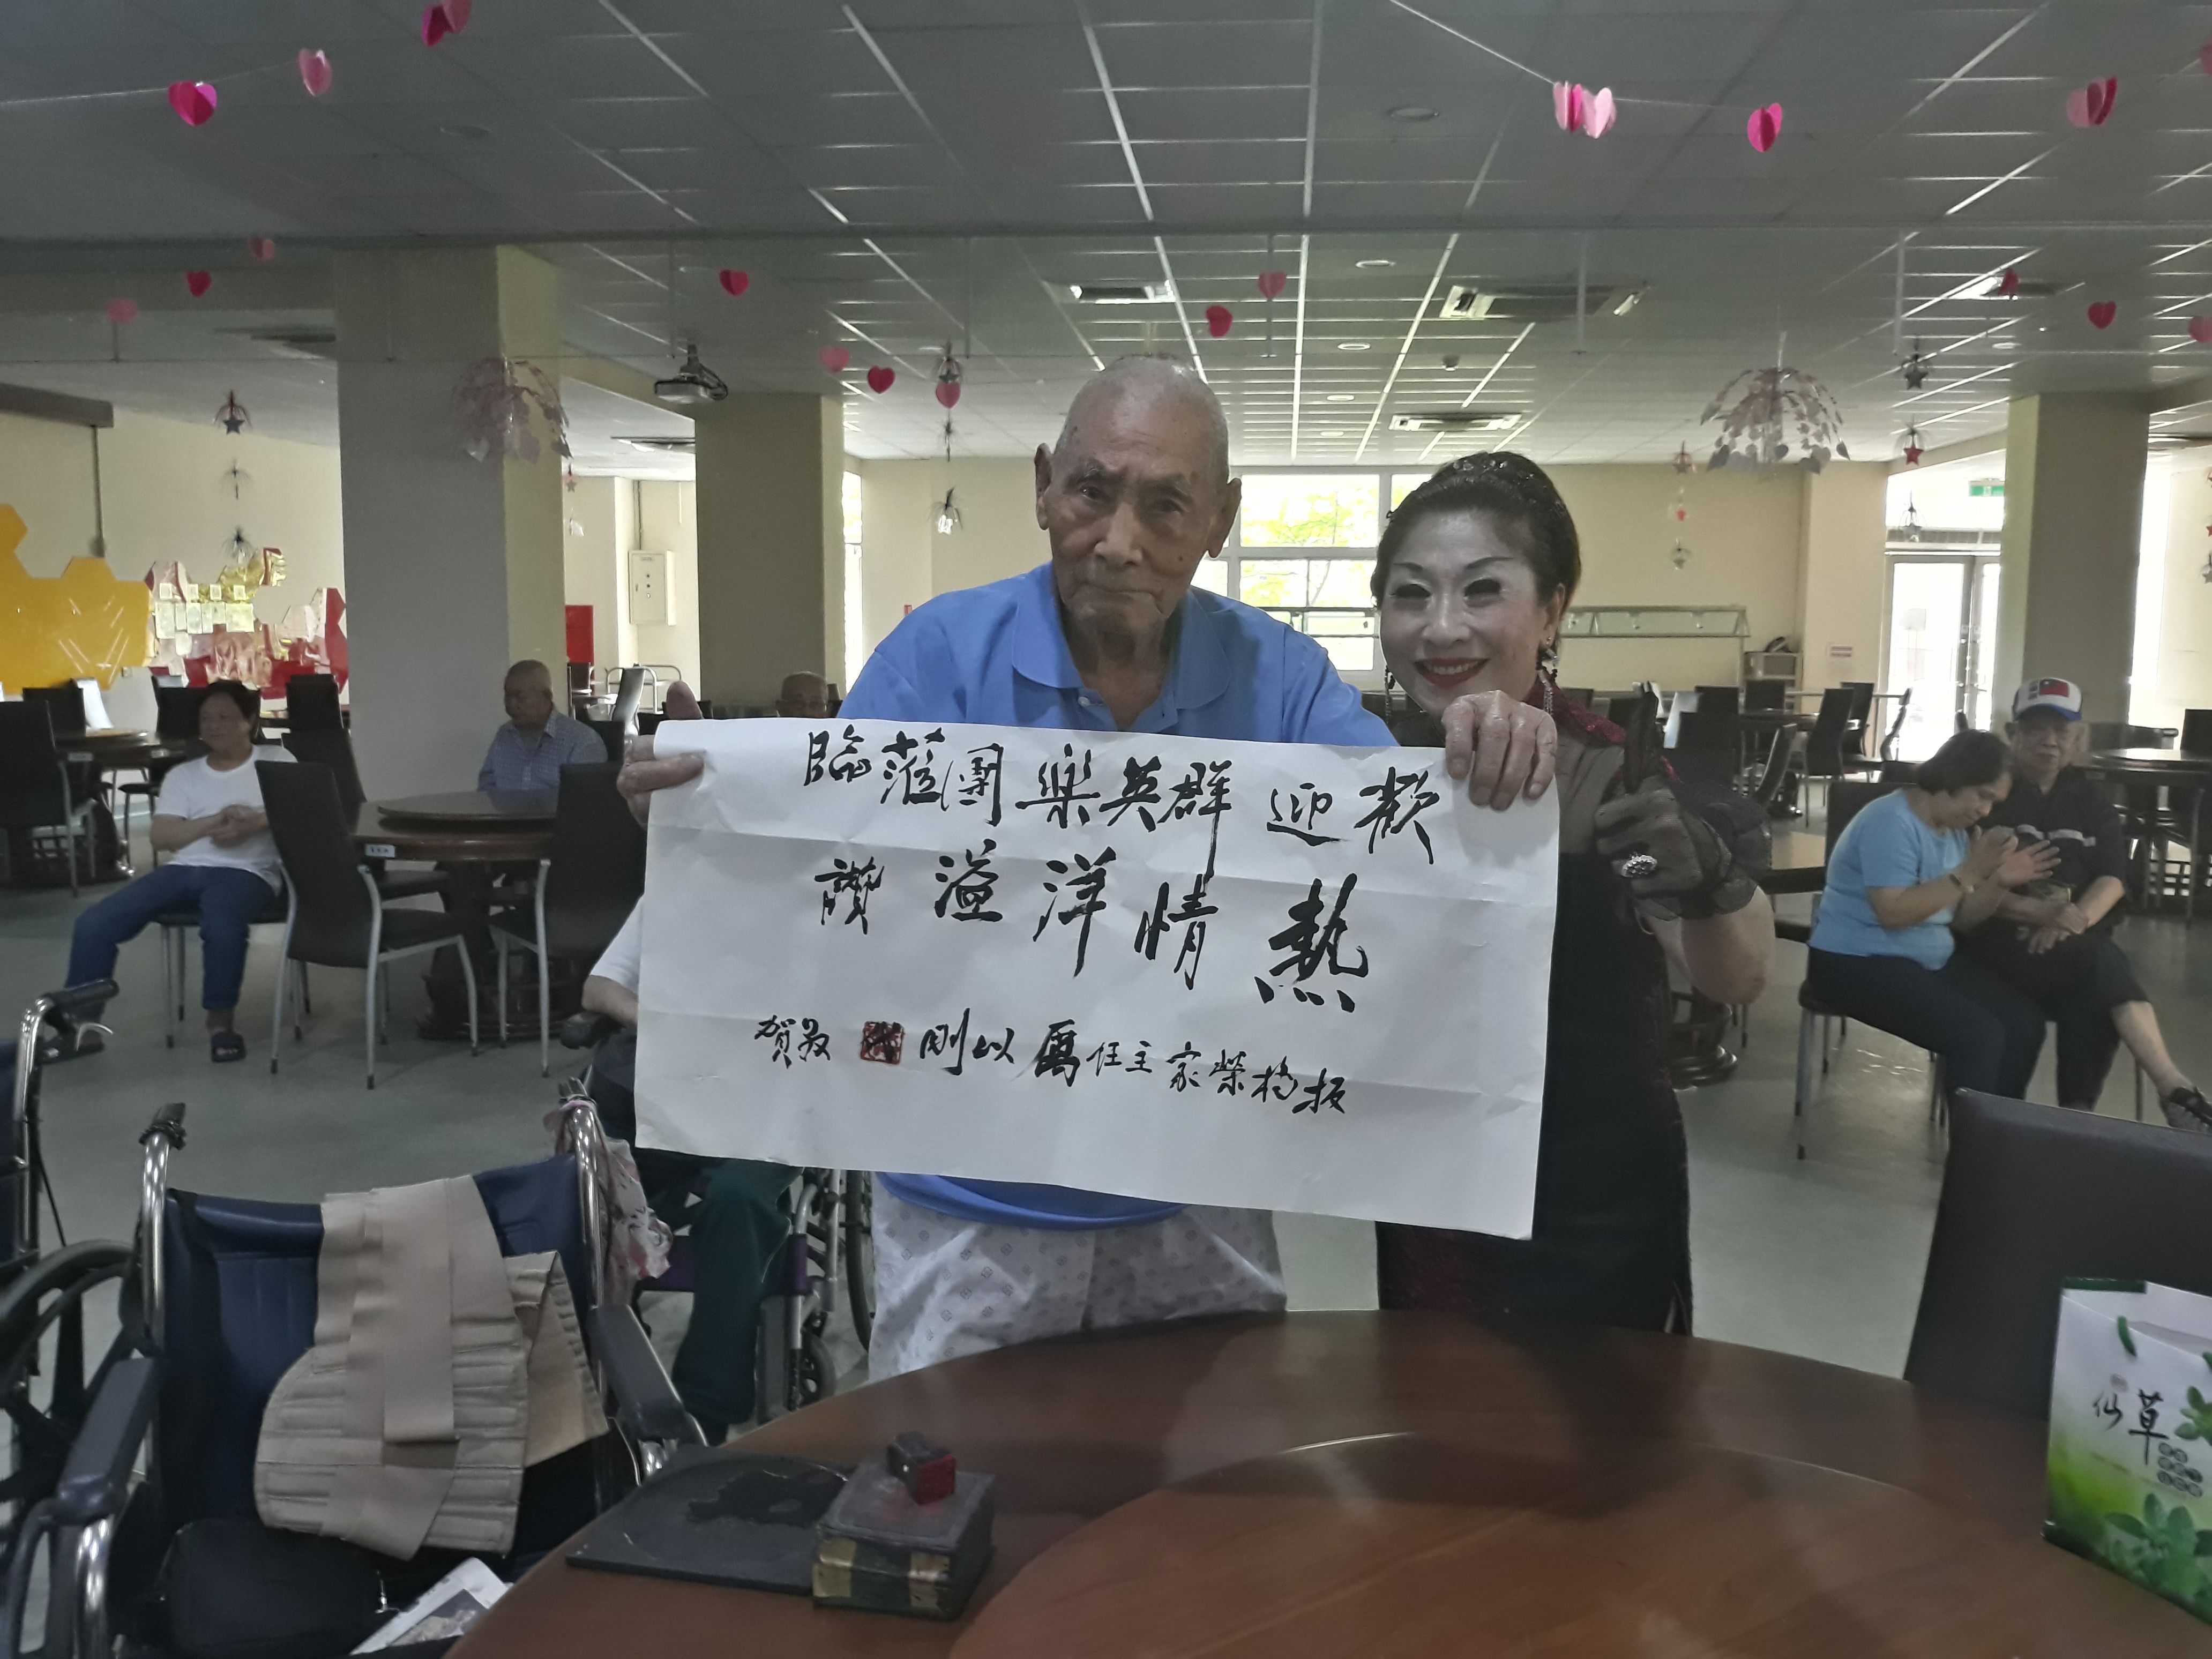 歡迎群英樂團蒞臨
熱情洋溢讚
板橋榮家主任厲以剛
敬賀
仙草